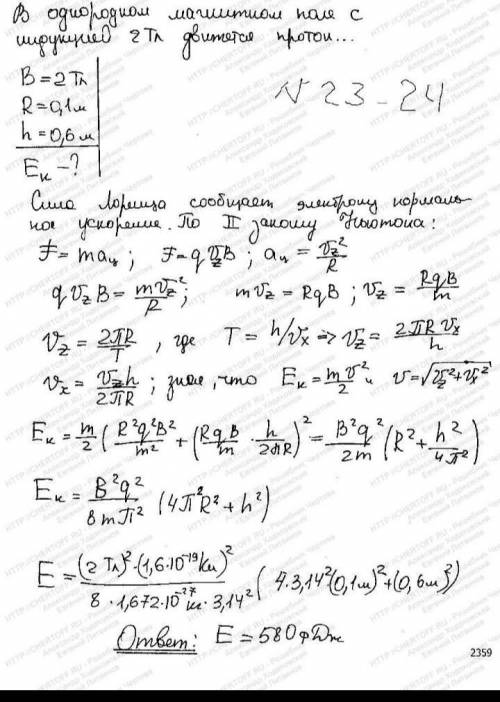 В однородном магнитном поле с
индукцией 2 Тл движется протон...
B = 2 Тл
R = 0,1 м
h = 0,6 м
Eк - ?
N 23-24
Сила Лоренца сообщает электрону нормаль-
ное ускорение. По II закону Ньютона:
F = maц ; F = q v_z B ; aц = v_z²/R
q v_z B = m v_z²/R ; m v_z = RqB ; v_z = RqB/m
v_z = 2πR/T , где T = h/v_x => v_z = 2πR v_x/h
v_x = v_z h/2πR ; зная, что Eк = m v²/2 и v = √(v_z² + v_x²)
Eк = m/2 (R²q²B²/m² + (RqB/m · h/2πR)²) = B²q²/2m (R² + h²/4π²)
Eк = B²q²/8mπ² (4π²R² + h²)
E = (2 Тл)²·(1,6·10⁻¹⁹ Кл)²/8·1,672·10⁻²⁷ кг·3,14² (4·3,14²(0,1м)² + (0,6м)²)
Ответ: E = 580 фДж
2359